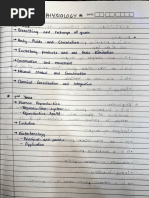 PHYSIOLOGY
Breathing and exchange of gases
Body Fluids and Circulation
Excretory products and their Elimination
Locomotion and movement
Neural Control and Coordination
Chemical Coordination and integration
Human Reproduction
Reproductive health
Evolution
Biotechnology
Application